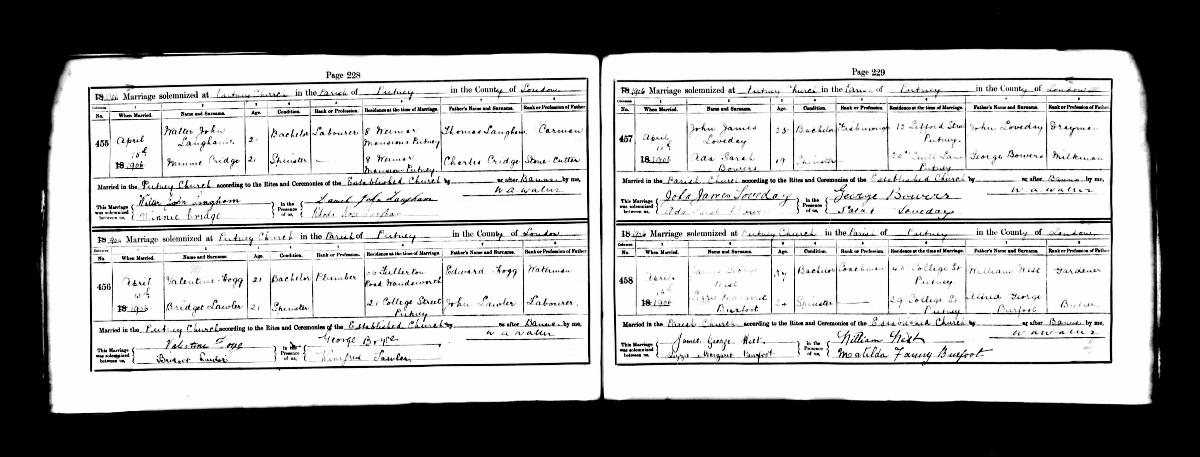 Page 228
1906 Marriage solemnized at Putney Church in the Parish of Putney in the County of London
No. When Married. Name and Surname. Age. Condition. Rank or Profession. Residence at the time of Marriage. Father's Name and Surname. Rank or Profession of Father.
455 April 15th 1906 Walter John Langham 21 Bachelor Labourer 8 Weimar Mansions Putney Thomas Langham Carman
Minnie Cridge 21 Spinster — 8 Weimar Mansions Putney Charles Cridge Stone-Cutter
Married in the Putney Church according to the Rites and Ceremonies of the Established Church by or after Banns by me,
W A Walter
This Marriage was solemnized between us, Walter John Langham Minnie Cridge in the Presence of us, John Langham Langham
1906 Marriage solemnized at Putney Church in the Parish of Putney in the County of London
No. When Married. Name and Surname. Age. Condition. Rank or Profession. Residence at the time of Marriage. Father's Name and Surname. Rank or Profession of Father.
456 April 15th 1906 Valentine Fogg 21 Bachelor Plumber Fullerton Road Wandsworth Edward Fogg Waterman
Bridget Lawler 21 Spinster 21 College Street Putney John Lawler Labourer.
Married in the Putney Church according to the Rites and Ceremonies of the Established Church by or after Banns by me,
W A Walter
This Marriage was solemnized between us, Valentine Fogg Bridget Lawler in the Presence of us, George Winifred Lawler
Page 229
1906 Marriage solemnized at Putney Church in the Parish of Putney in the County of London
No. When Married. Name and Surname. Age. Condition. Rank or Profession. Residence at the time of Marriage. Father's Name and Surname. Rank or Profession of Father.
457 April 1906 John James Loveday Bachelor Putney. John Loveday Drayman
Ada Sarah Bowers 19 Spinster Putney George Bowers Milkman
Married in the Parish Church according to the Rites and Ceremonies of the Established Church by or after Banns by me,
W A Walter
This Marriage was solemnized between us, John James Loveday Ada Sarah Bowers in the Presence of us, George Bowers Loveday
1906 Marriage solemnized at Putney Church in the Parish of Putney in the County of London
No. When Married. Name and Surname. Age. Condition. Rank or Profession. Residence at the time of Marriage. Father's Name and Surname. Rank or Profession of Father.
458 April 1906 James George West Bachelor Coachman College St Putney William West Gardener
Margaret Burfoot 24 Spinster — 29 College St Putney Alfred George Burfoot Butler
Married in the Parish Church according to the Rites and Ceremonies of the Established Church by or after Banns by me,
W A Walter
This Marriage was solemnized between us, James George West. Margaret Burfoot in the Presence of us, William West Matilda Fanny Burfoot